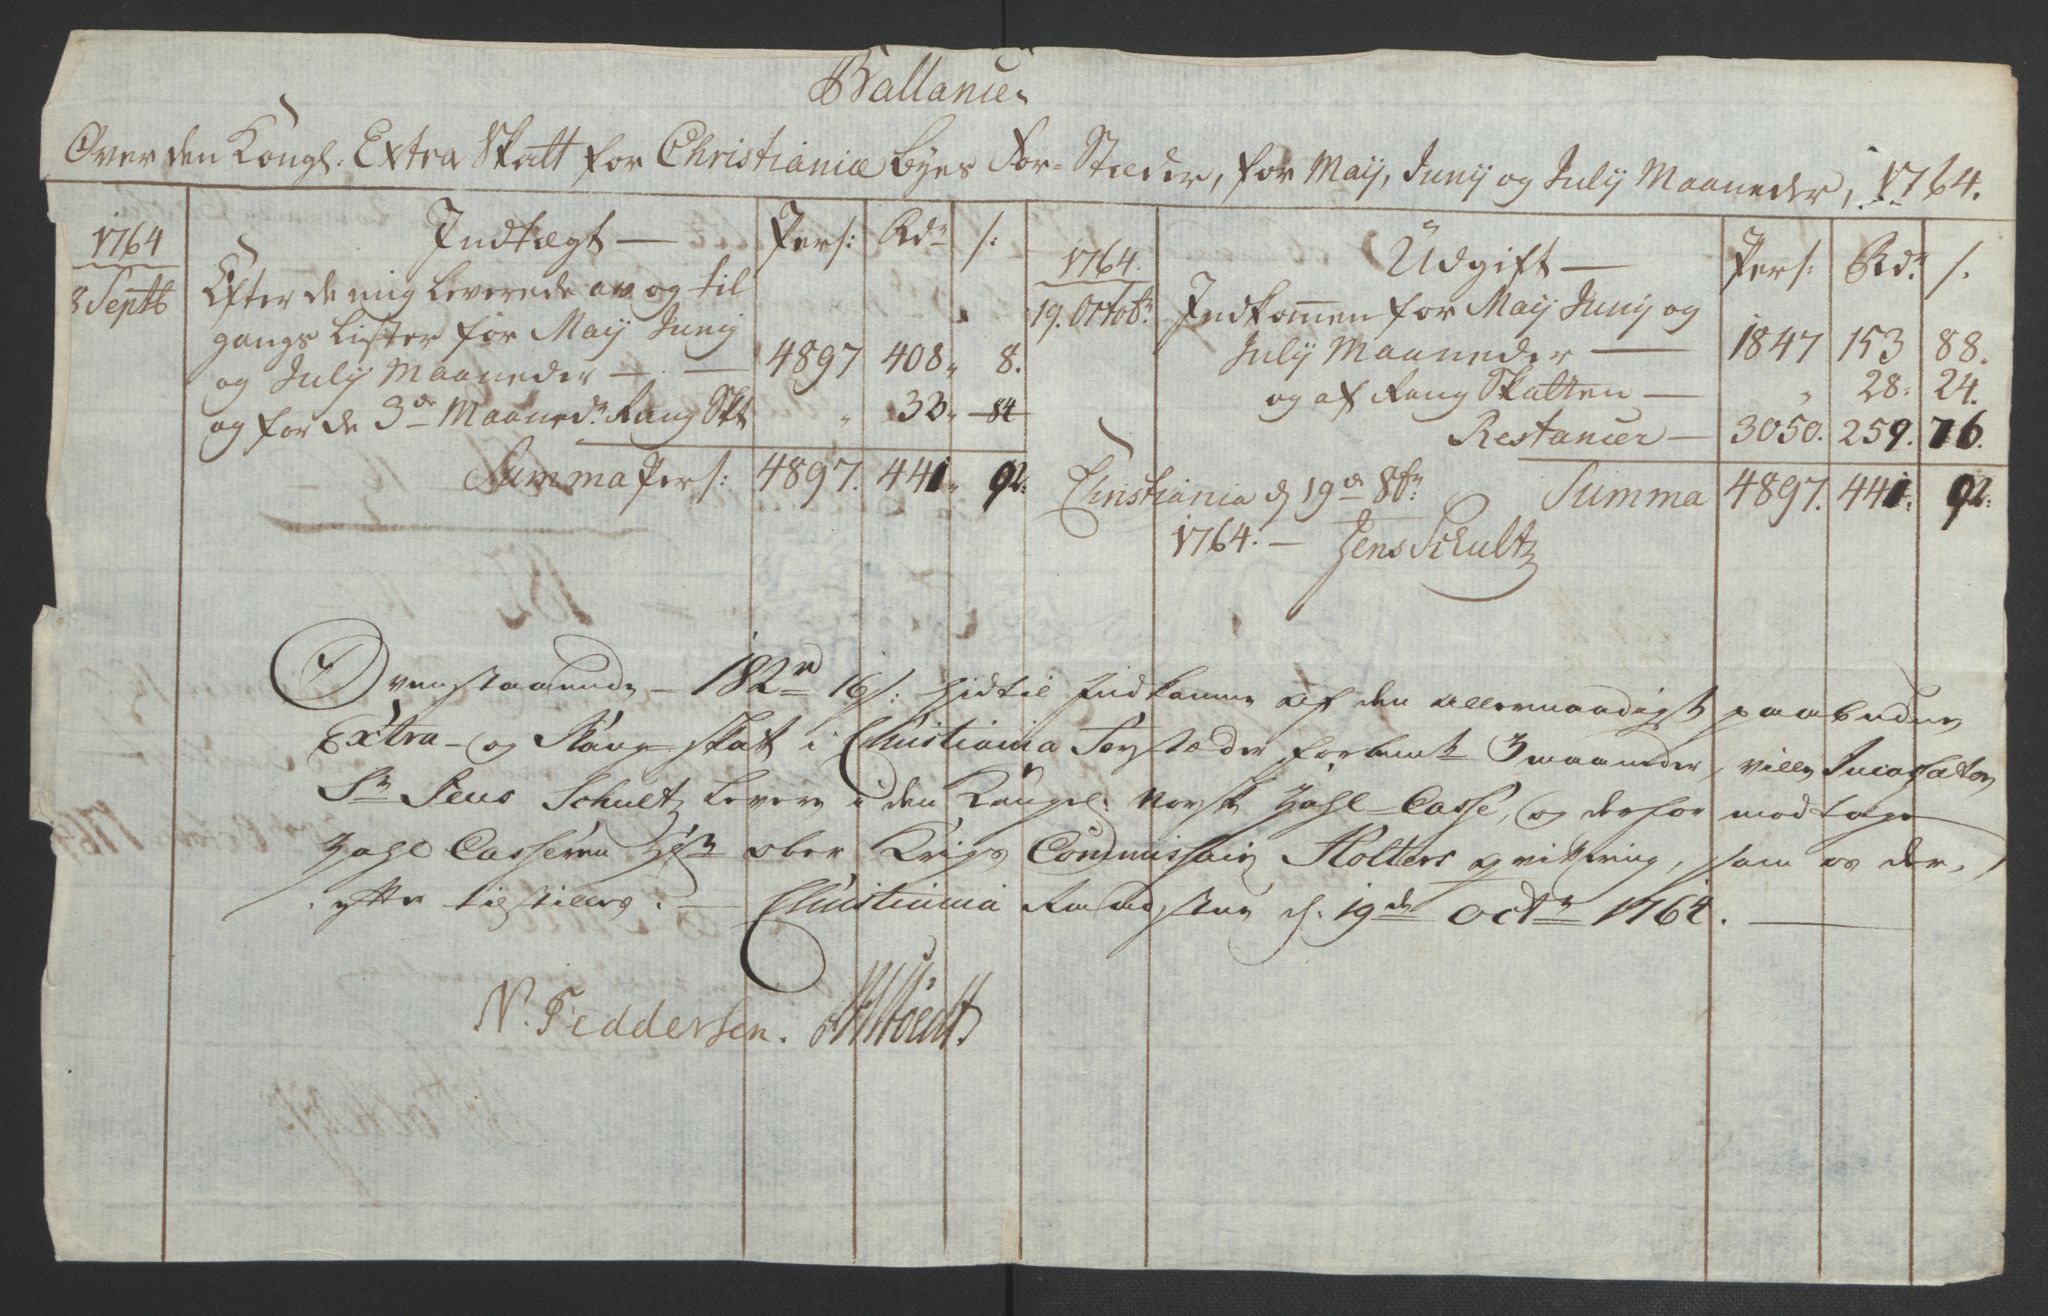 Ballance
Over den Kongl: Extra Skatt for Christianiæ Byes For-Stæder, for Maij, Junij og Julij Maaneder, 1764.
1764 Indtægt — Pers: Rdr s:
8 Septb Efter de mig Leverede av og til
gangs Lister for Maij Junij
og Julij Maaneder — 4897 408„ 8.
og for de 3de Maaned: Rang Skt „ 33„ 84
Summa Pers: 4897. 441„ 92:
1764. Udgift — Pers: Rdr. s.
19. Octobr Indkommen for Maij Junij og
Julij Maaneder — 1847 153 88.
og af Rang Skatten — „ 28: 24.
Restancer — 3050. 259. 76.
Christiania d 19de 8br: Summa 4897. 441: 92:
1764. — Jens Schultz
Ovenstaaende — 182rd 16s: hidtil Indkomne af den allernaadigst paabudne
Extra- og Rang-skat i Christiania Forstæder forbemte 3 maaneder, ville Incassator
Sr Jens Schultz levere i den Kongel: Norske Zahl-Casse, og derfor modtage
Zahl Casseren Hr ober Krigs Commissair Holters qvittering, som os der-
efter tilstilles. — Christiania Raadstue d. 19de Octr 1764. —
N. Feddersen.